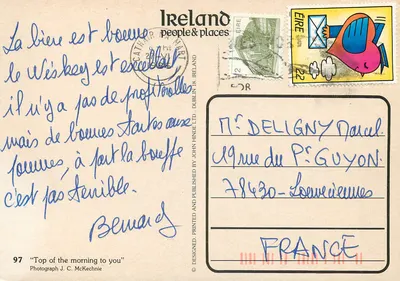 Ireland
people & places
La bière est bonne
le Wiskey est excellent
il n'y a pas de profiterolles
mais de bonnes tartes aux
pommes, à part la bouffe
c'est pas terrible.
Bernard
97 "Top of the morning to you"
Photograph J. C. McKechnie
© DESIGNED, PRINTED AND PUBLISHED BY JOHN HINDE LTD., DUBLIN 18, IRELAND
ÉIRE
22
Mr DELIGNY Marcel
49 rue du Pt GUYON
78430 - Louveciennes
FRANCE